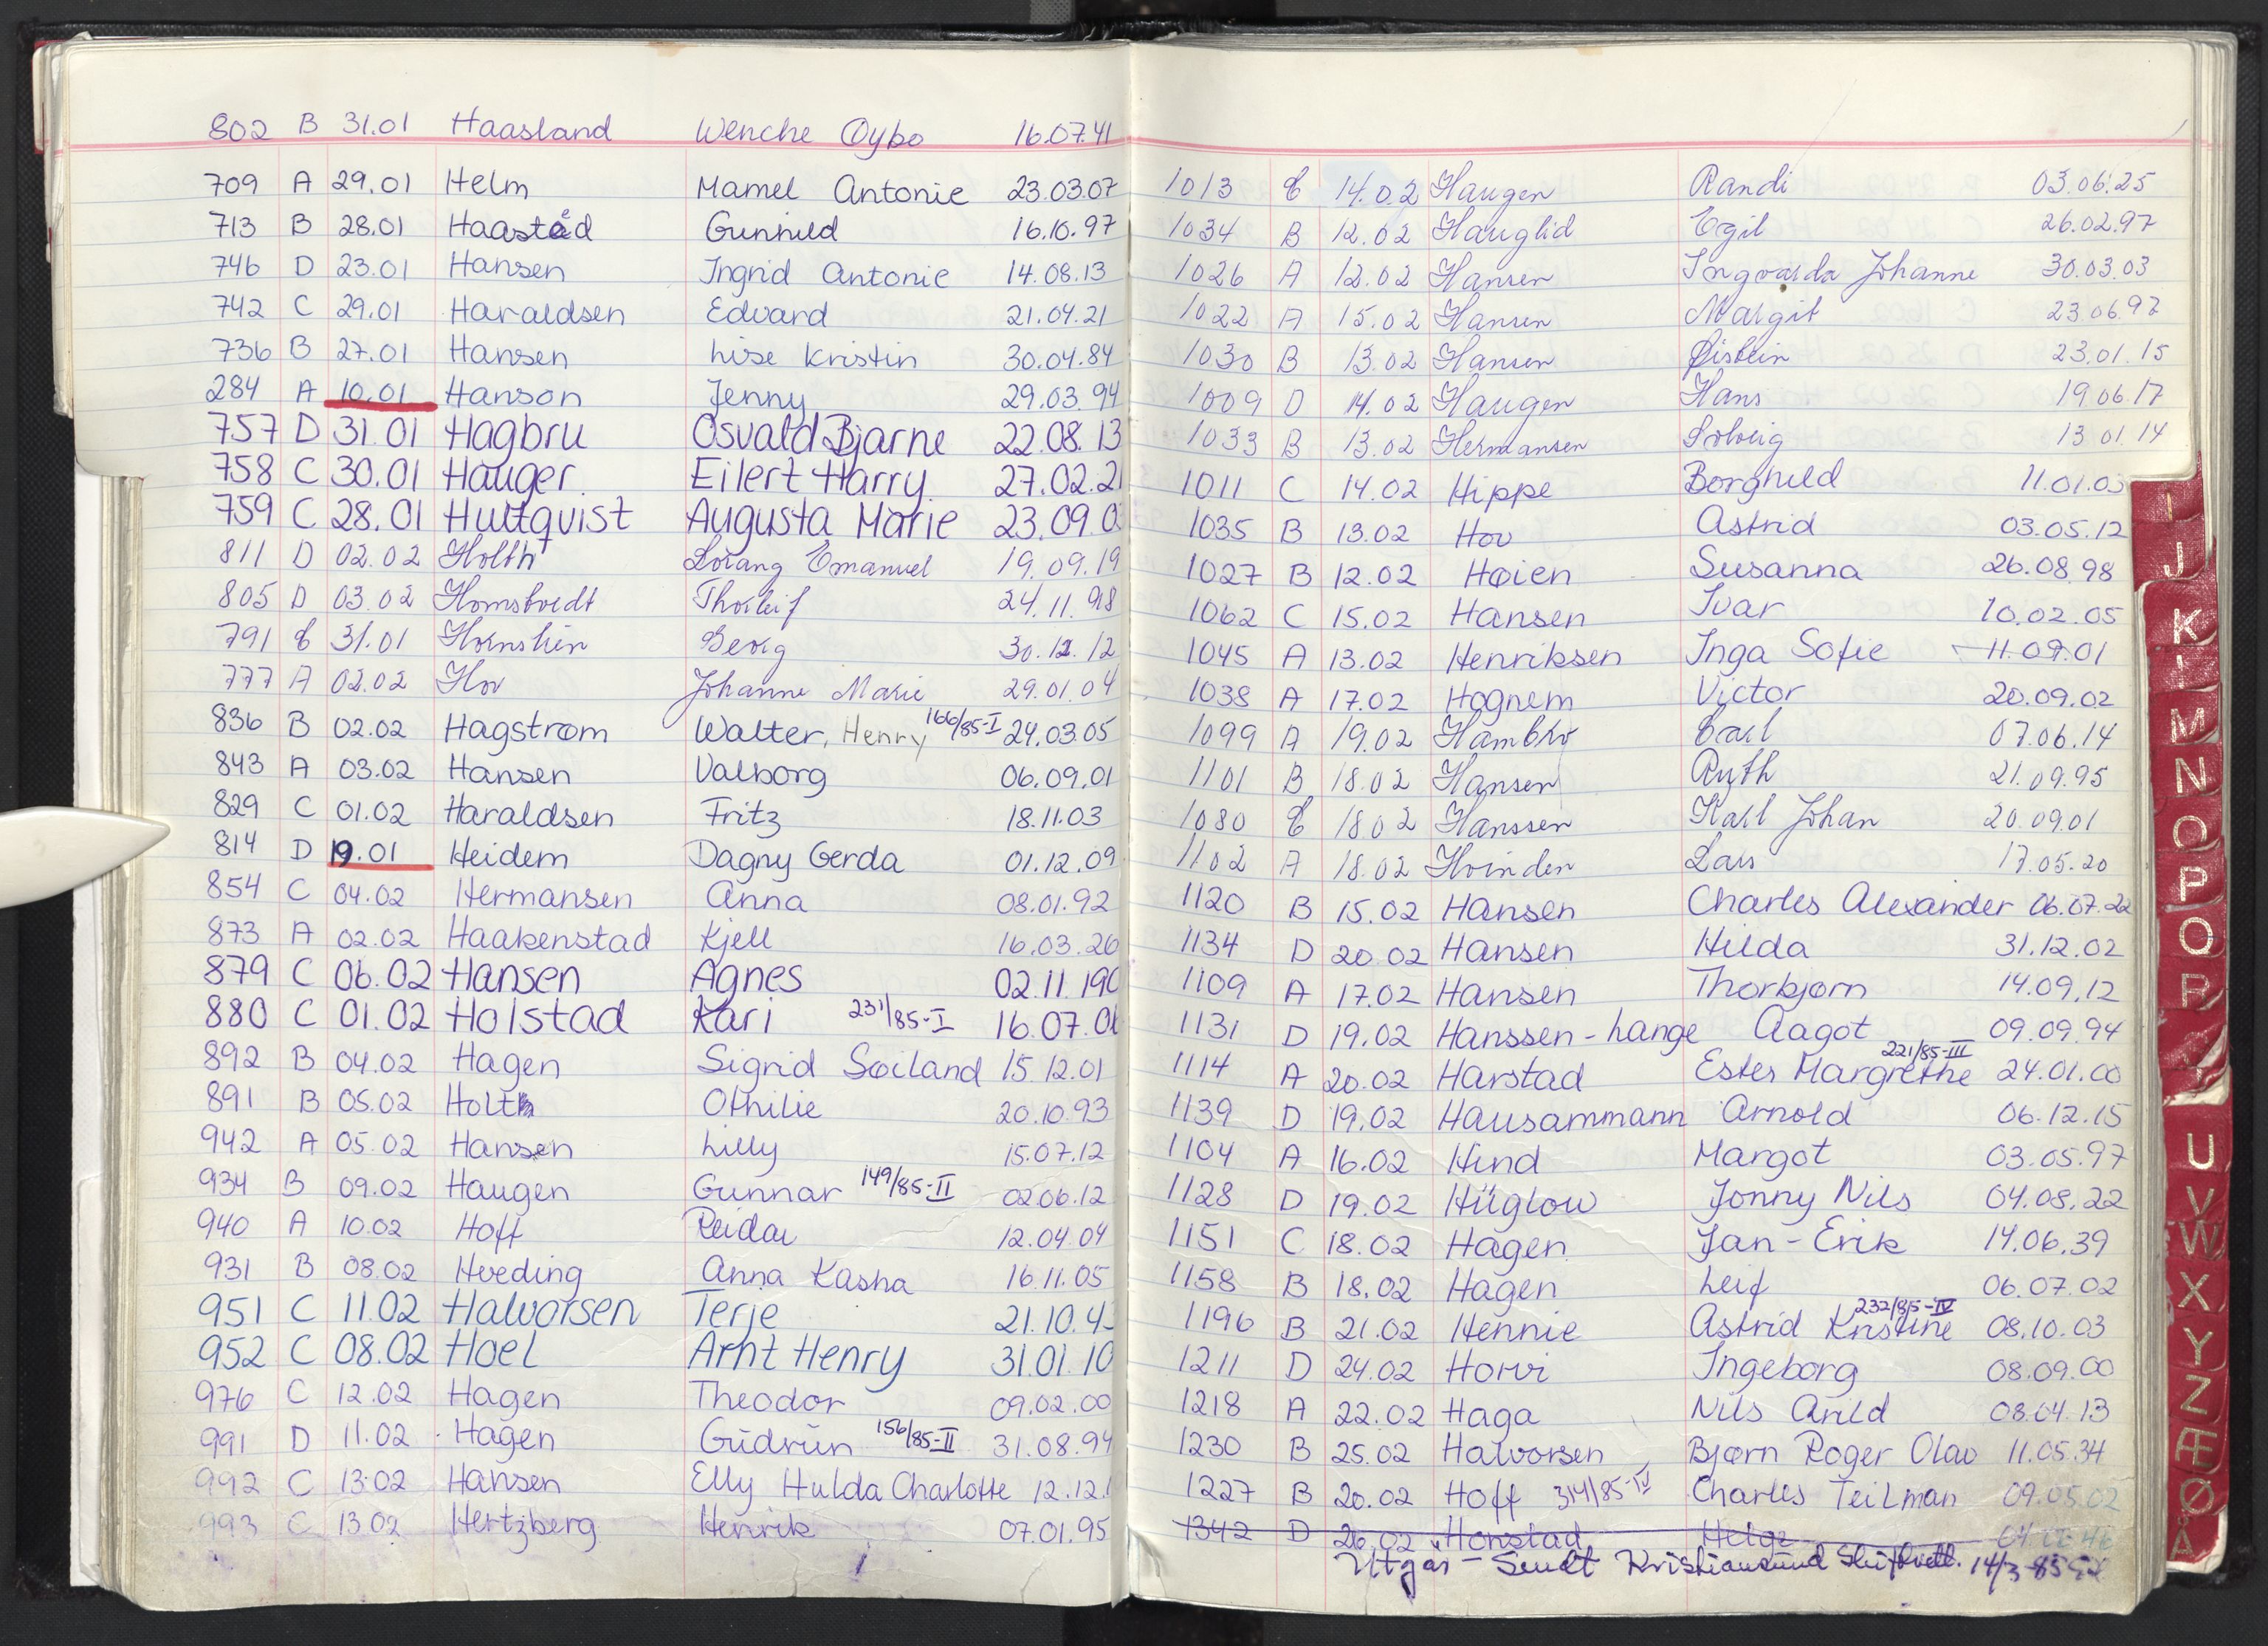 802 B 31.01 Haasland Wenche Oybo 16.07.41
709 A 29.01 Helm Mamel Antonie 23.03.07
713 B 28.01 Haastad Gunhild 16.10.97
746 D 23.01 Hansen Ingrid Antonie 14.08.13
742 C 29.01 Haraldsen Edvard 21.04.21
736 B 27.01 Hansen Lise Kristin 30.04.84
284 A 10.01 Hanson Jenny 29.03.94
757 D 31.01 Hagbru Osvald Bjarne 22.08.13
758 C 30.01 Hauger Eilert Harry 27.02.21
759 C 28.01 Hultquist Augusta Marie 23.09.0
811 D 02.02 Holth Lorang Emanuel 19.09.19
805 D 03.02 Homstvedt Thorleif 24.11.98
791 C 31.01 Hornslien Georg 30.12.12
777 A 02.02 Hov Johanne Marie 29.01.04
836 B 02.02 Hagstrøm Walter, Henry 166/85-I 24.03.05
843 A 03.02 Hansen Valborg 06.09.01
829 C 01.02 Haraldsen Fritz 18.11.03
814 D 19.01 Heidem Dagny Gerda 01.12.09
854 C 04.02 Hermansen Anna 08.01.92
873 A 02.02 Haakenstad Kjell 16.03.26
879 C 06.02 Hansen Agnes 02.11.190
880 C 01.02 Holstad Kari 231/85-I 16.07.06
892 B 04.02 Hagen Sigrid Søiland 15.12.01
891 B 05.02 Holth Othilie 20.10.93
942 A 05.02 Hansen Lilly 15.07.12
934 B 09.02 Haugen Gunnar 149/85-II 02.06.12
940 A 10.02 Hoff Reidar 12.04.04
931 B 08.02 Hveding Anna Kasha 16.11.05
951 C 11.02 Halvorsen Terje 21.10.43
952 C 08.02 Hoel Arnt Henry 31.01.10
976 C 12.02 Hagen Theodor 09.02.00
991 D 11.02 Hagen Gudrun 156/85-II 31.08.94
992 C 13.02 Hansen Elly Hulda Charlotte 12.12.1
993 C 13.02 Hertzberg Henrik 07.01.95
1013 C 14.02 Haugen Randi 03.06.25
1034 B 12.02 Hauglid Egil 26.02.97
1026 A 12.02 Hansen Ingvarda Johanne 30.03.03
1022 A 15.02 Hansen Margit 23.06.97
1030 B 13.02 Hansen Øistein 23.01.15
1009 D 14.02 Haugen Hans 19.06.17
1033 B 13.02 Hermansen Solveig 13.01.14
1011 C 14.02 Hippe Borghild 11.01.03
1035 B 13.02 Hov Astrid 03.05.12
1027 B 12.02 Høien Susanna 26.08.98
1062 C 15.02 Hansen Ivar 10.02.05
1045 A 13.02 Henriksen Inga Sofie 11.09.01
1038 A 17.02 Hognem Victor 20.09.02
1099 A 19.02 Hambro Carl 07.06.14
1101 B 18.02 Hansen Ruth 21.09.95
1080 C 18.02 Hanssen Karl Johan 20.09.01
1102 A 18.02 Hvinden Lars 17.05.20
1120 B 15.02 Hansen Charles Alexander 06.07.22
1134 D 20.02 Hansen Hilda 31.12.02
1109 A 17.02 Hansen Thorbjørn 14.09.12
1131 D 19.02 Hanssen-Lange Aagot 09.09.94
1114 A 20.02 Harstad Ester Margrethe 221/85-III 24.01.00
1139 D 19.02 Hausammann Arnold 06.12.15
1104 A 16.02 Hind Margot 03.05.97
1128 D 19.02 Hüglow Jonny Nils 04.08.22
1151 C 18.02 Hagen Jan-Erik 14.06.39
1158 B 18.02 Hagen Leif 06.07.02
1196 B 21.02 Hennie Astrid Kristine 232/85-IV 08.10.03
1211 D 24.02 Horvi Ingeborg 08.09.00
1218 A 22.02 Haga Nils Arild 08.04.13
1230 B 25.02 Halvorsen Bjørn Roger Olav 11.05.34
1227 B 20.02 Hoff 314/85-IV Charles Teilman 09.05.02
1342 D 26.02 Honstad Helge
Utgår - Sendt Kristiansund 14/3-85
I
J
K
L
M
N
O
P
Q
R
U
V
W
X
Y
Z
Æ
Ø
Å